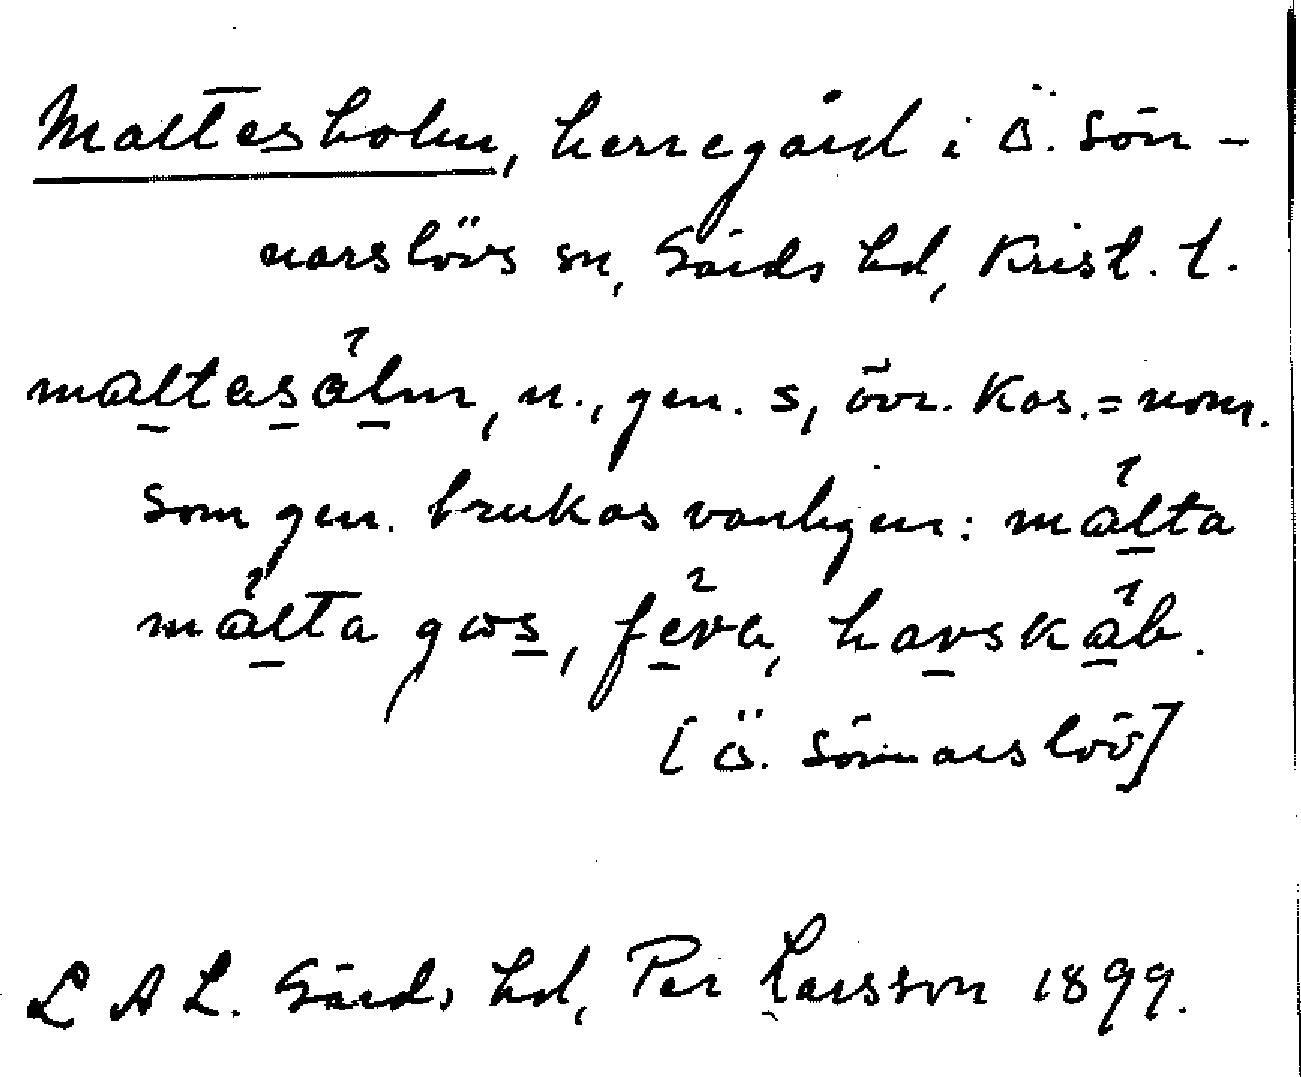 Maltesholm, herregård i Ö. Sön-
narslövs sn, Gärds hd, Krist. l.
maltasálm, n., gen. s, övr. kas. = nom.
Som gen. brukas vanligen: málta
málta gωs, fèva, havskáb.
[Ö. Sönnarslöv]
L A L. Gärds hd, Per Larsson 1899.